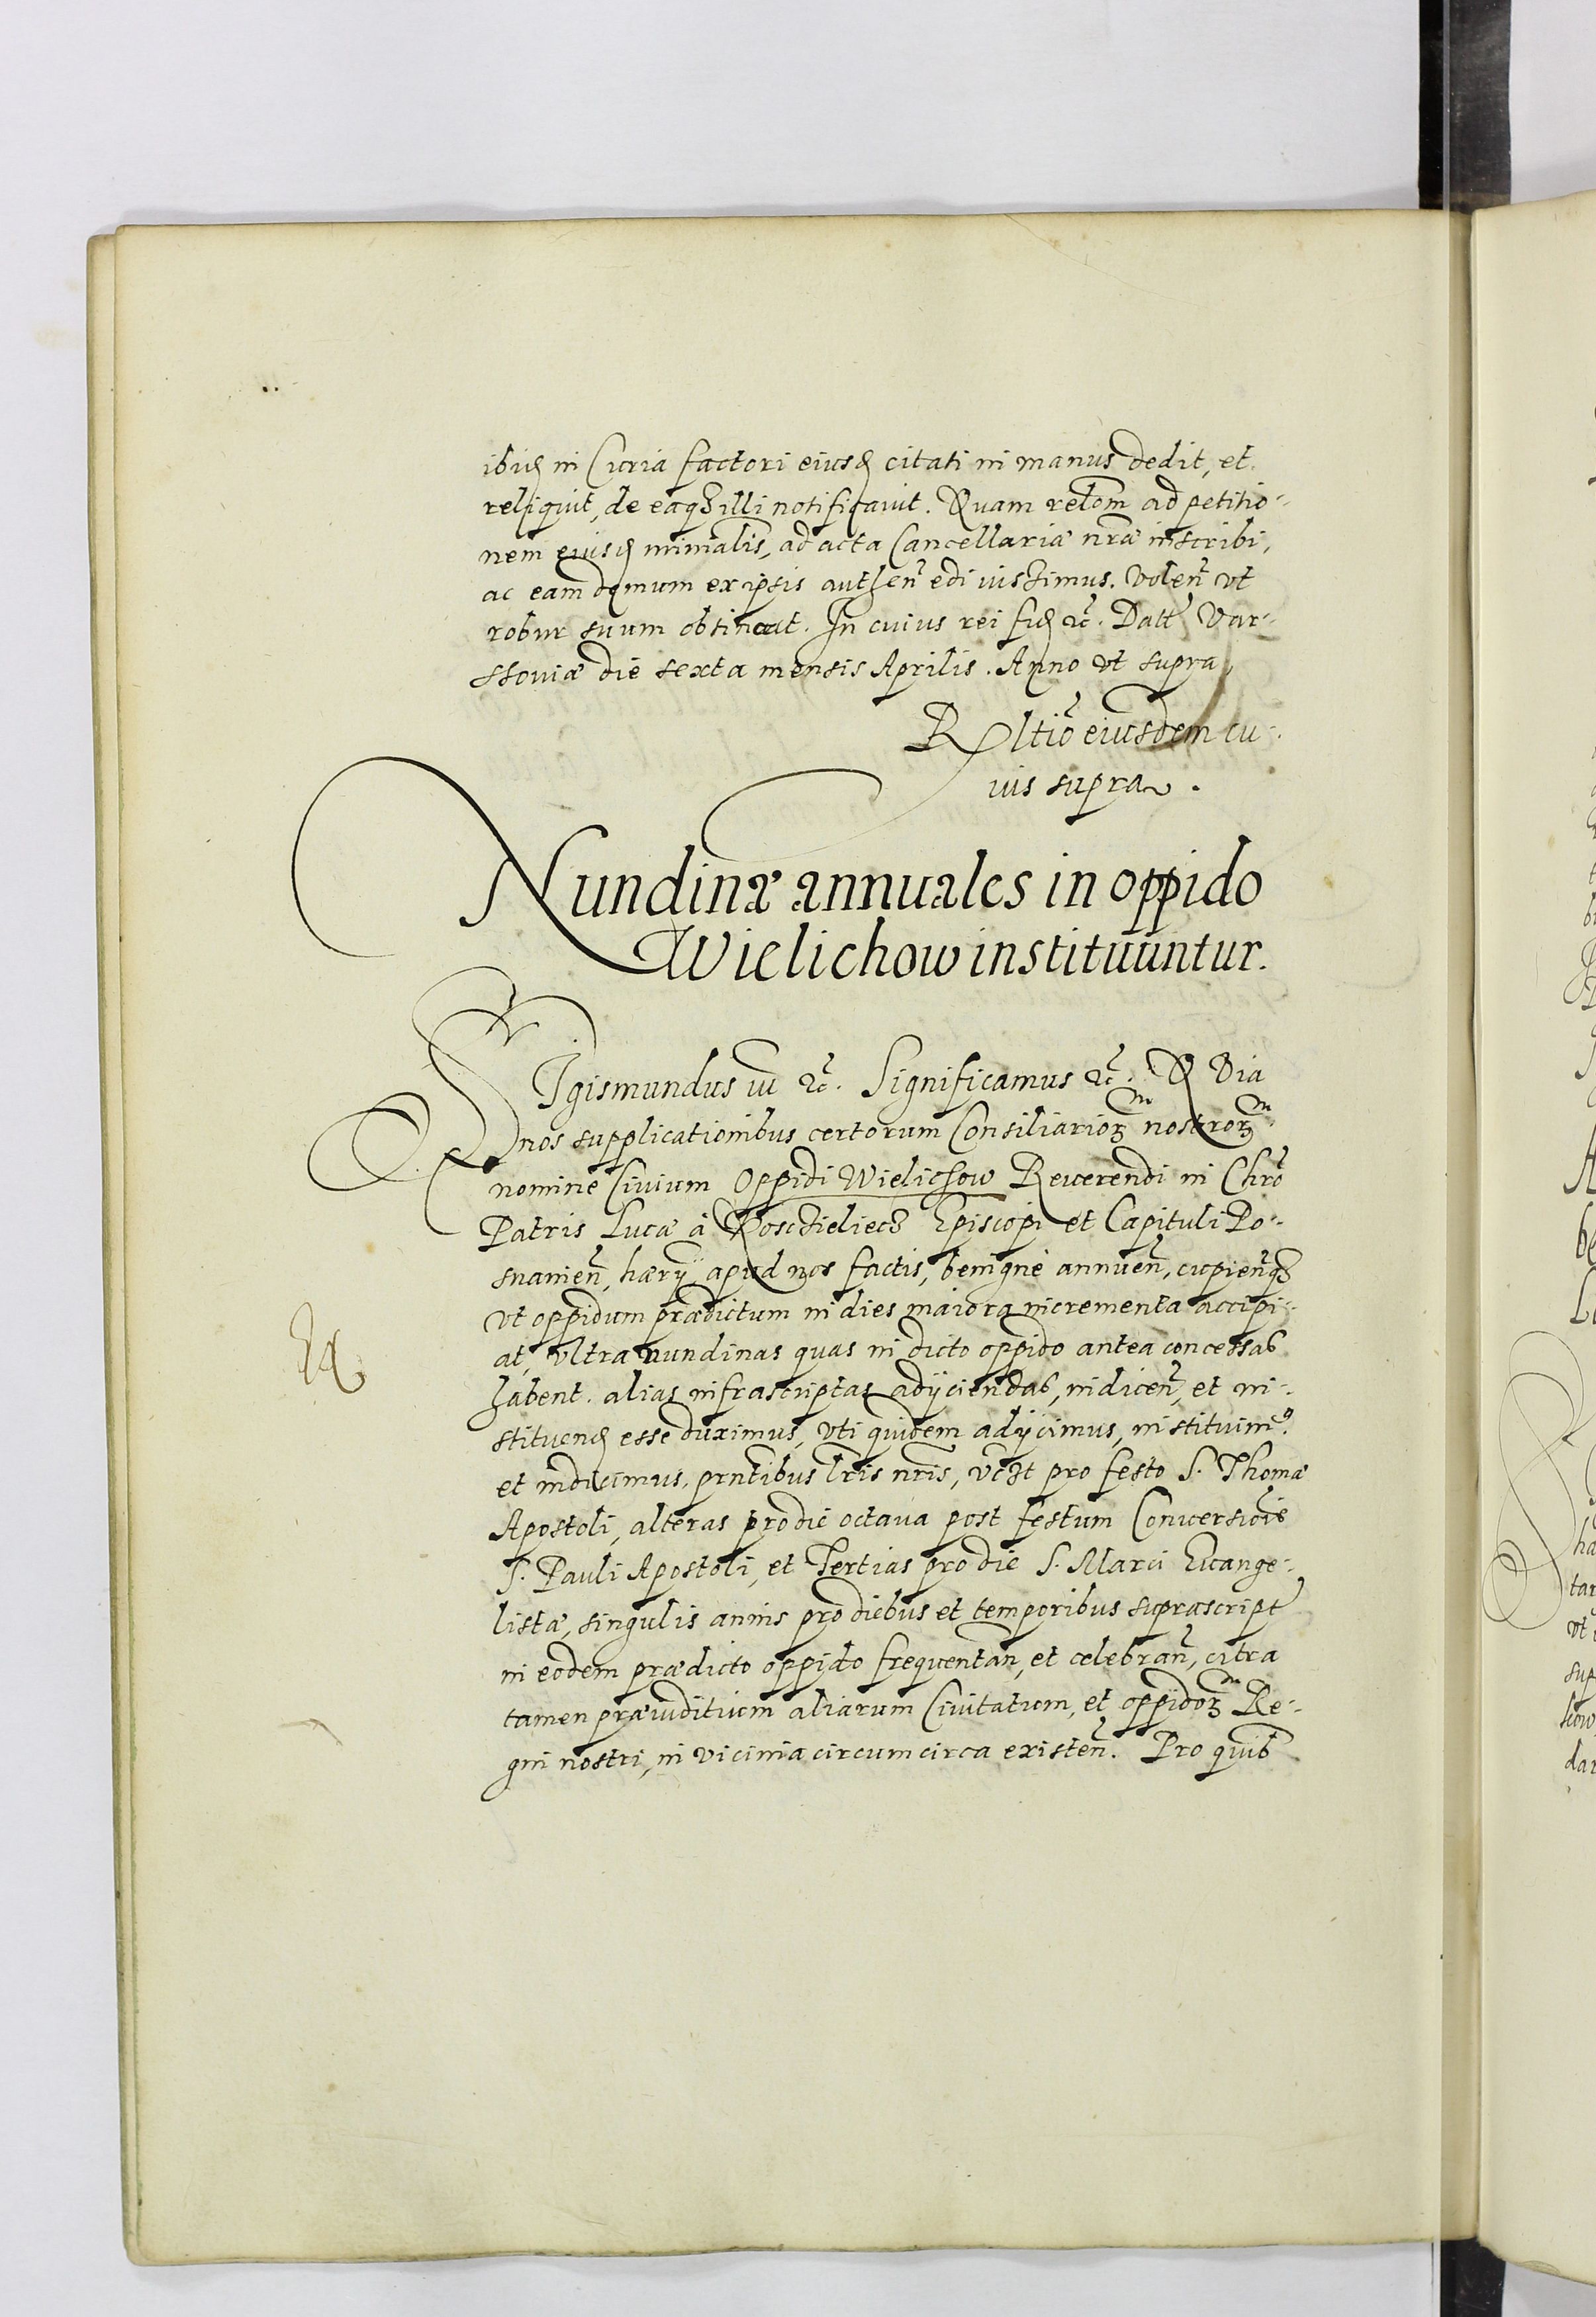 ibid in Curia factori eiusd citati in manus dedit, et
reliquit, de eaqz illi notificavit. Quam relõm ad petitio-
nem eiusd mĩnalis, ad acta Cancellariæ nræ inscribi,
ac eam demum ex ipsis authen edi iussimus. Volen vt
robur suum obtineat. In cuius rei fid &c. Datt Var-
ssoviæ die sexta mensis Aprilis. Anno vt supra
Rltio eiusdem cu-
ius supra.
Nundinæ annuales in oppido
Wielichow instituuntur.
SIgismundus III &c. Significamus &c. Quia
nos supplicationibus certorum Consiliariorm nostrorm
nomine Civium Oppidi Wielichow Reverendi in Chrõ
Patris Lucæ à Koscielecz Episcopi et Capituli Po-
snanien, hærÿ apud nos factis, benignè annuen, cupienqz
vt oppidum prædictum in dies maiora incrementa accipi-
at, vltra nundinas quas in dicto oppido antea concessas
habent. alias infrascriptas adÿciendas, indicen, et in-
stituend esse duximus, vti quidem adÿcimus, instituim9
et indicimus, prntibus lris nris, vczt pro festo S. Thomæ
Apostoli, alteras pro die octava post festum Conversiõis
S. Pauli Apostoli, et Tertias pro die S. Marci Evange-
listæ, singulis annis pro diebus et temporibus suprascript
in eodem prædicto oppido frequentan, et celebran, citra
tamen præiuditium aliarum Civitatum, et oppidorm Re-
gni nostri, in vicinia circumcirca existen. Pro quib